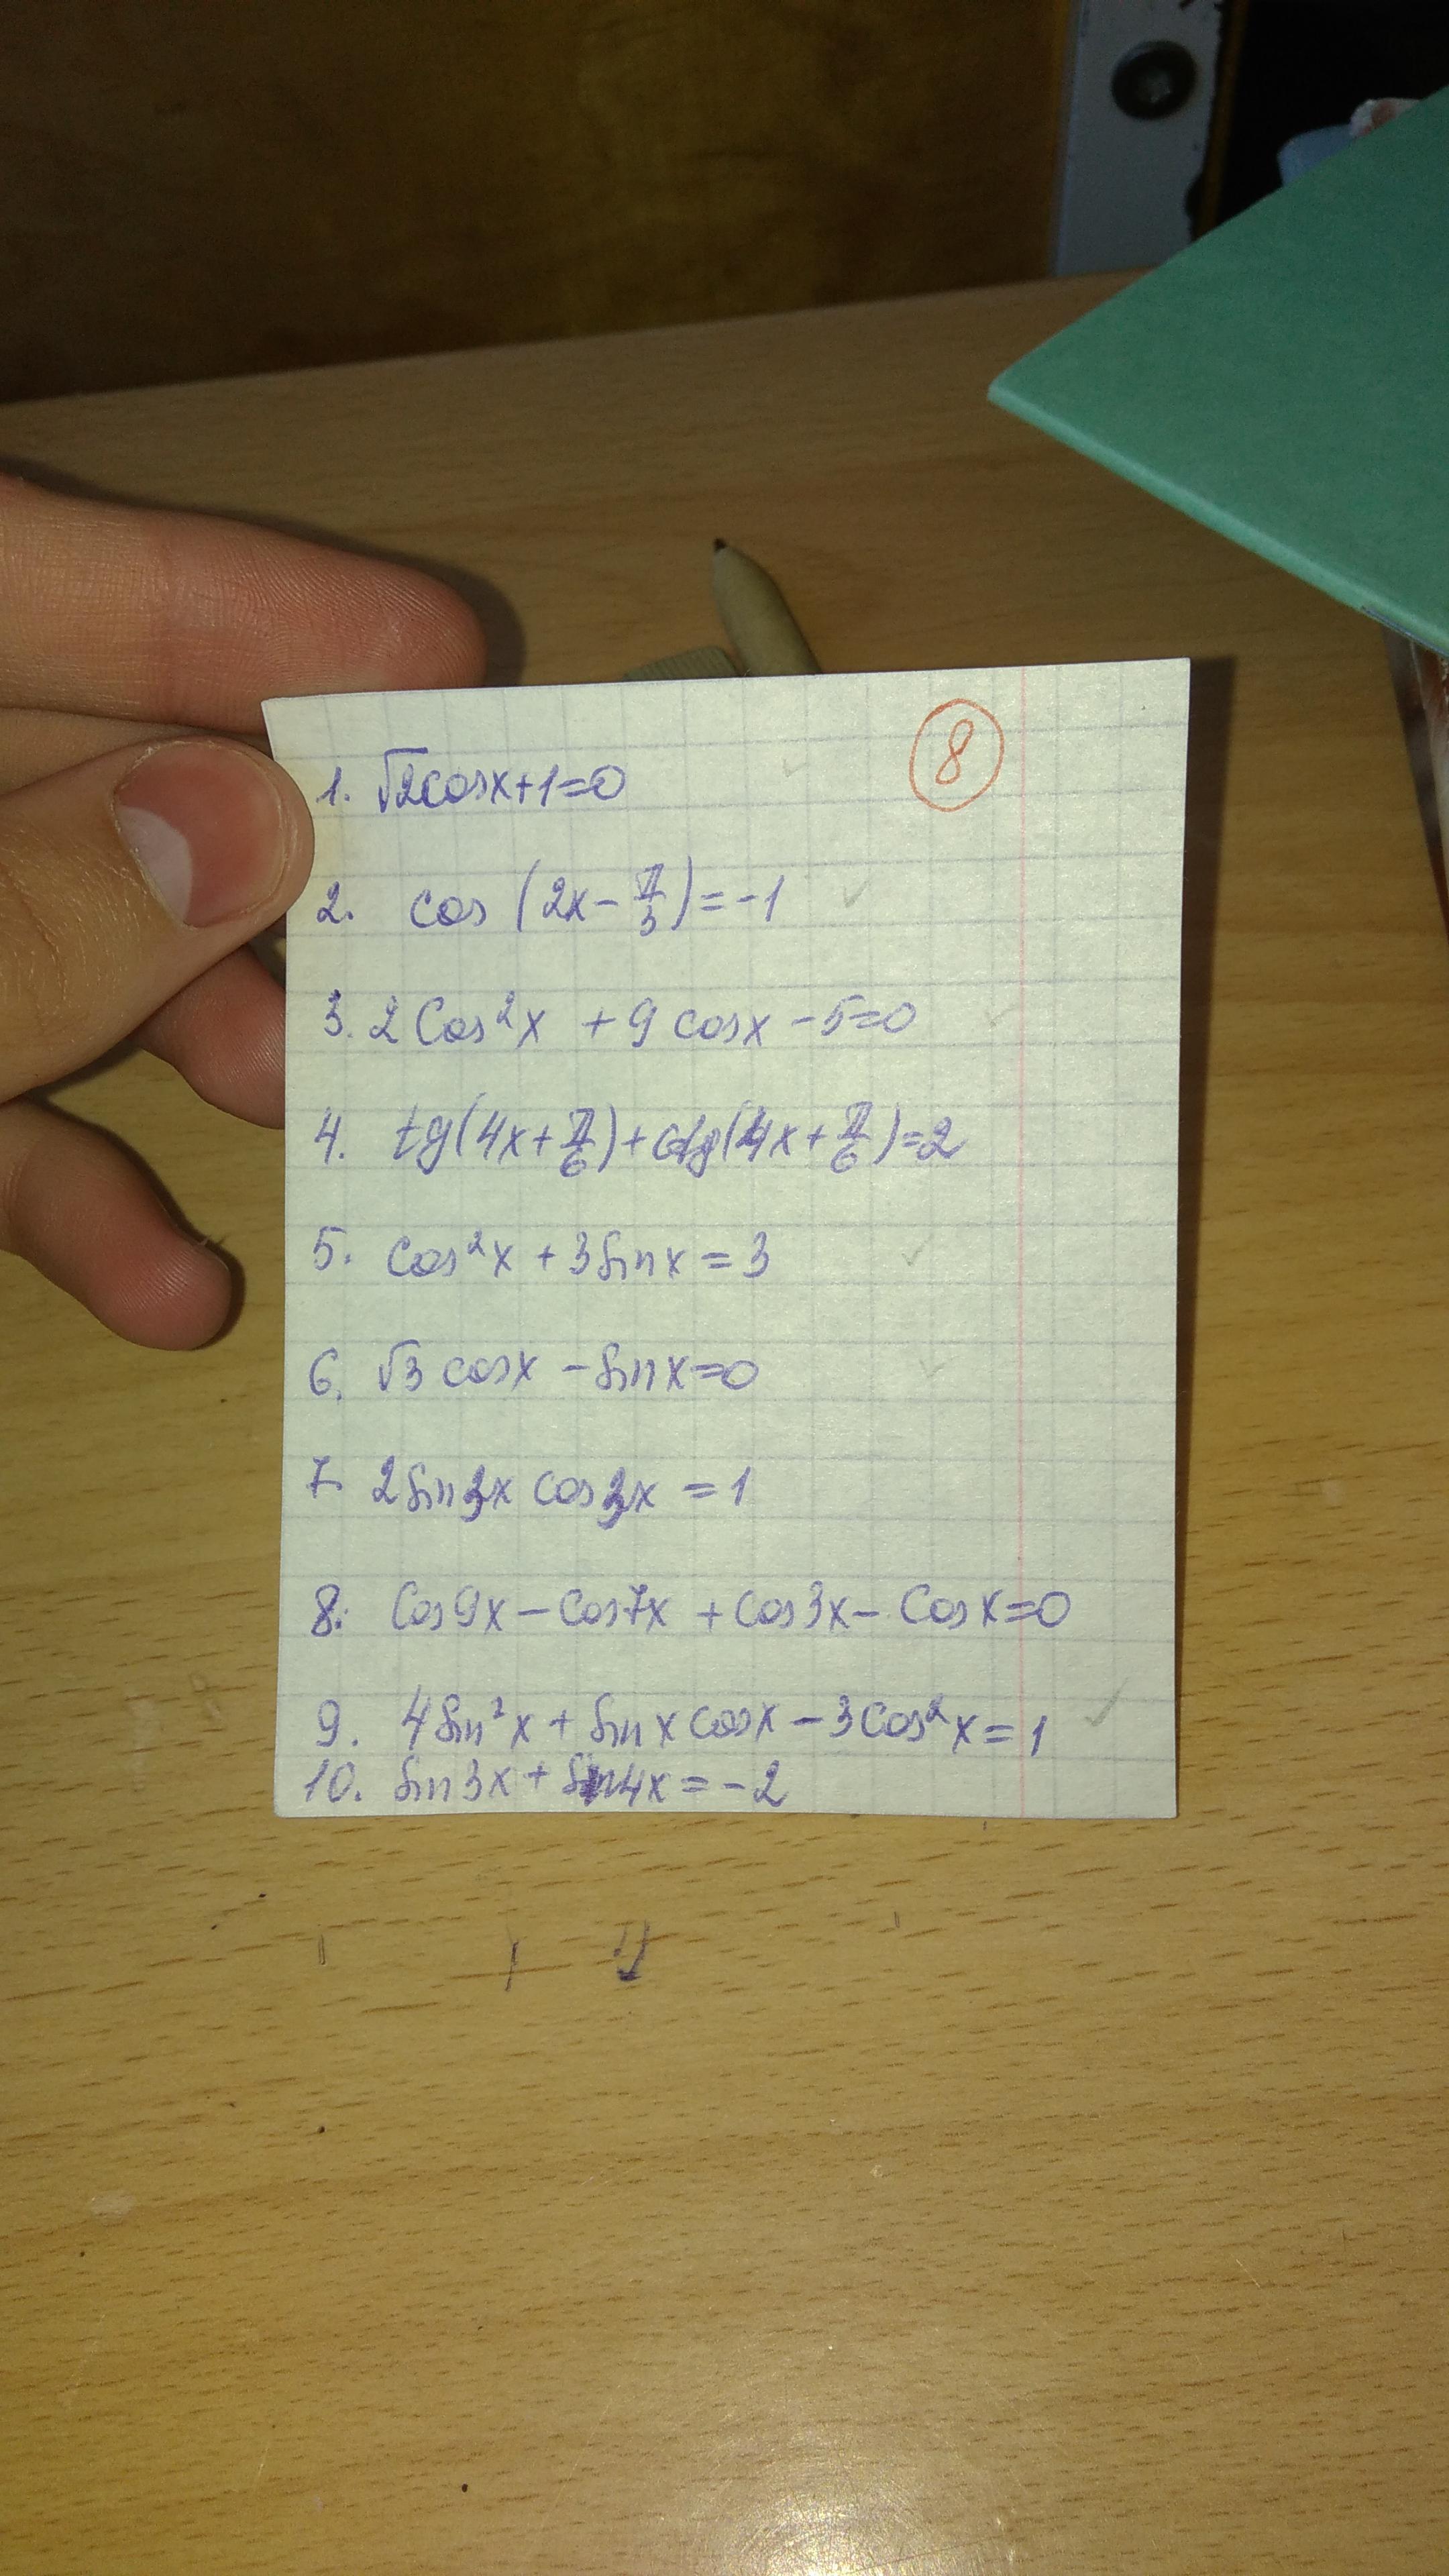 8
1. √2cosx+1=0
2. cos(2x-π/3)=-1
3. 2cos²x +9cosx-5=0
4. tg(4x+π/6)+ctg(4x+π/6)=2
5. cos²x+3sinx=3
6. √3cosx-sinx=0
7. 2sin3x cos3x=1
8. cos9x-cos7x+cos3x-cosx=0
9. 4sin²x+sinxcosx-3cos²x=1
10. sin3x+sin4x=-2